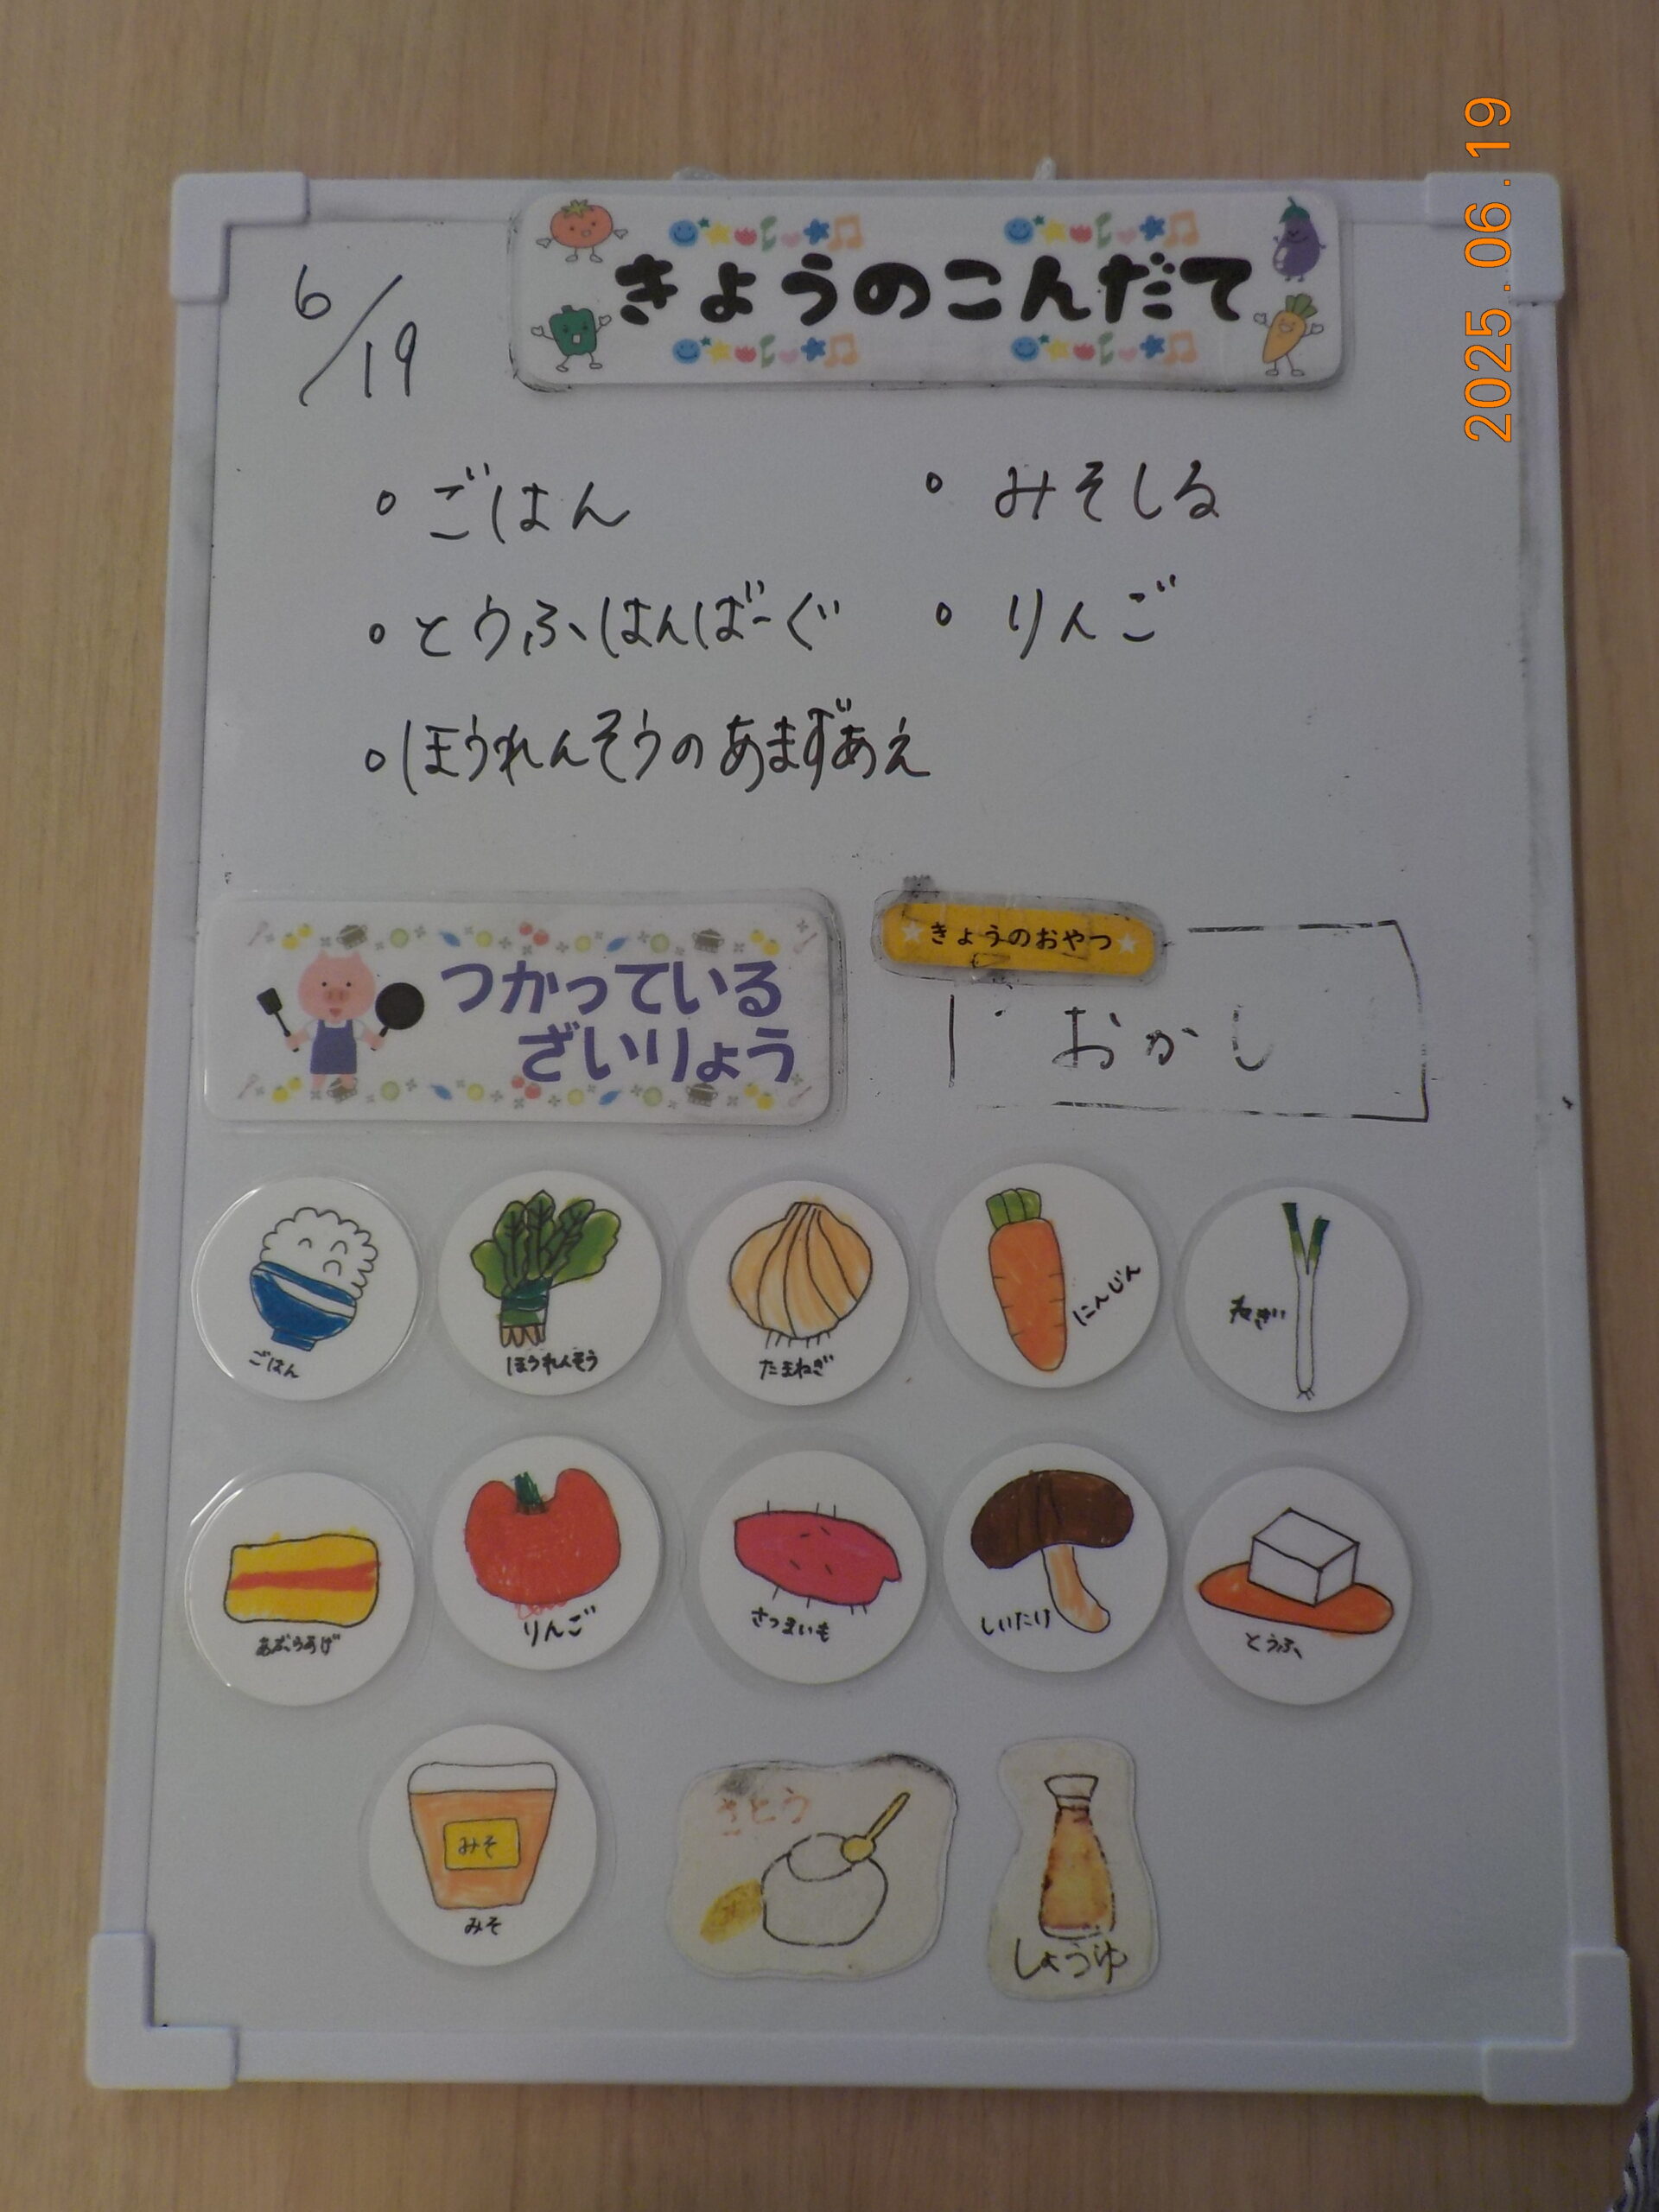 2025.06.19
きょうのこんだて
6/19
ごはん
とうふはんばーぐ
ほうれんそうのあまずあえ
みそしる
りんご
つかっている
ざいりょう
きょうのおやつ
おかし
ごはん
ほうれんそう
たまねぎ
にんじん
ねぎ
あぶらあげ
りんご
さつまいも
しいたけ
とうふ
みそ
みそ
さとう
しょうゆ